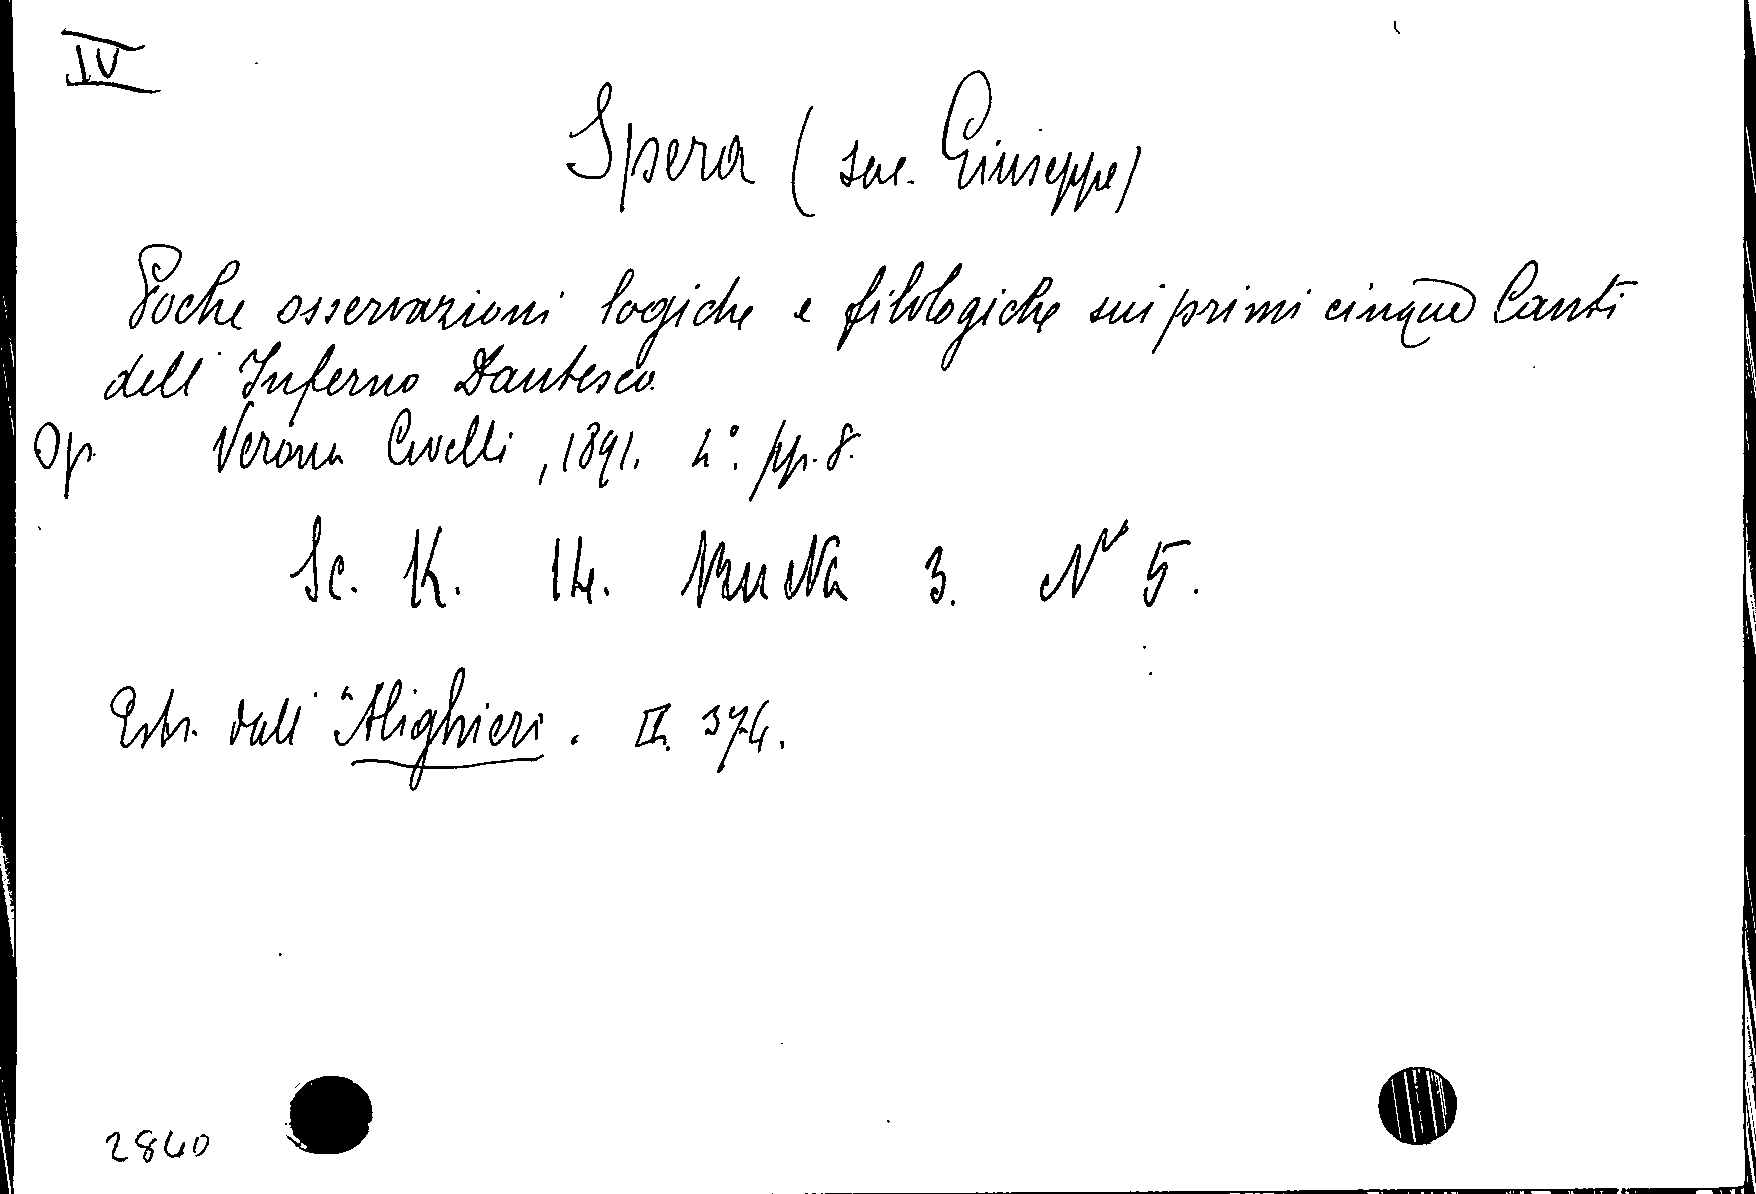 IV
Spera (sac. Giuseppe)
Poche osservazioni logiche e filologiche sui primi cinque Canti
dell'Inferno Dantesco.
Op. Verona Civelli, 1891. 4°. pp. 8.
Sc. K. 14. Busta 3. N° 5.
Estr. dall' "Alighieri. II. 374.
2840